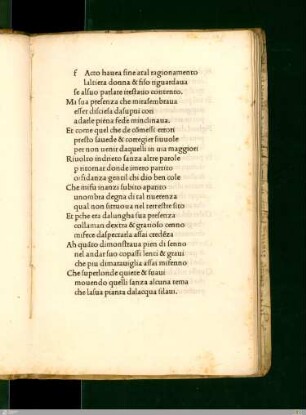 f Acto hauea fine atal ragionamento
laltiera donna & fiso riguardaua
se alsuo parlare restauo contento.
Ma sua presenza che mirasembraua
esser discesa dasupni cori
adarle piena fede minclinaua.
Et come quel che de cōmessi errori
presto sauede & corregier siuuole
per non uenir daquelli in ma maggiori
Riuolto indrieto sanza altre parole
p ritornar donde imero partito
cō fidanza gentil chi dio ben cole
Che missi inanzi subito aparito
unombra degna di tal riuerenza
qual non sitruoua nel terrestre sito
Et pche era dalungha sua presenza
collaman dextra & gratioso cenno
misece daspectarla assai credēza
Ah quāto dimonstraua pien di senno
nel andar suo copassi lenti & graui
che piu dimarauiglia assai misenno
Che superlonde quiete & suaui
mouendo quelli sanza alcuna tema
che lasua pianta dalacqua silaui.